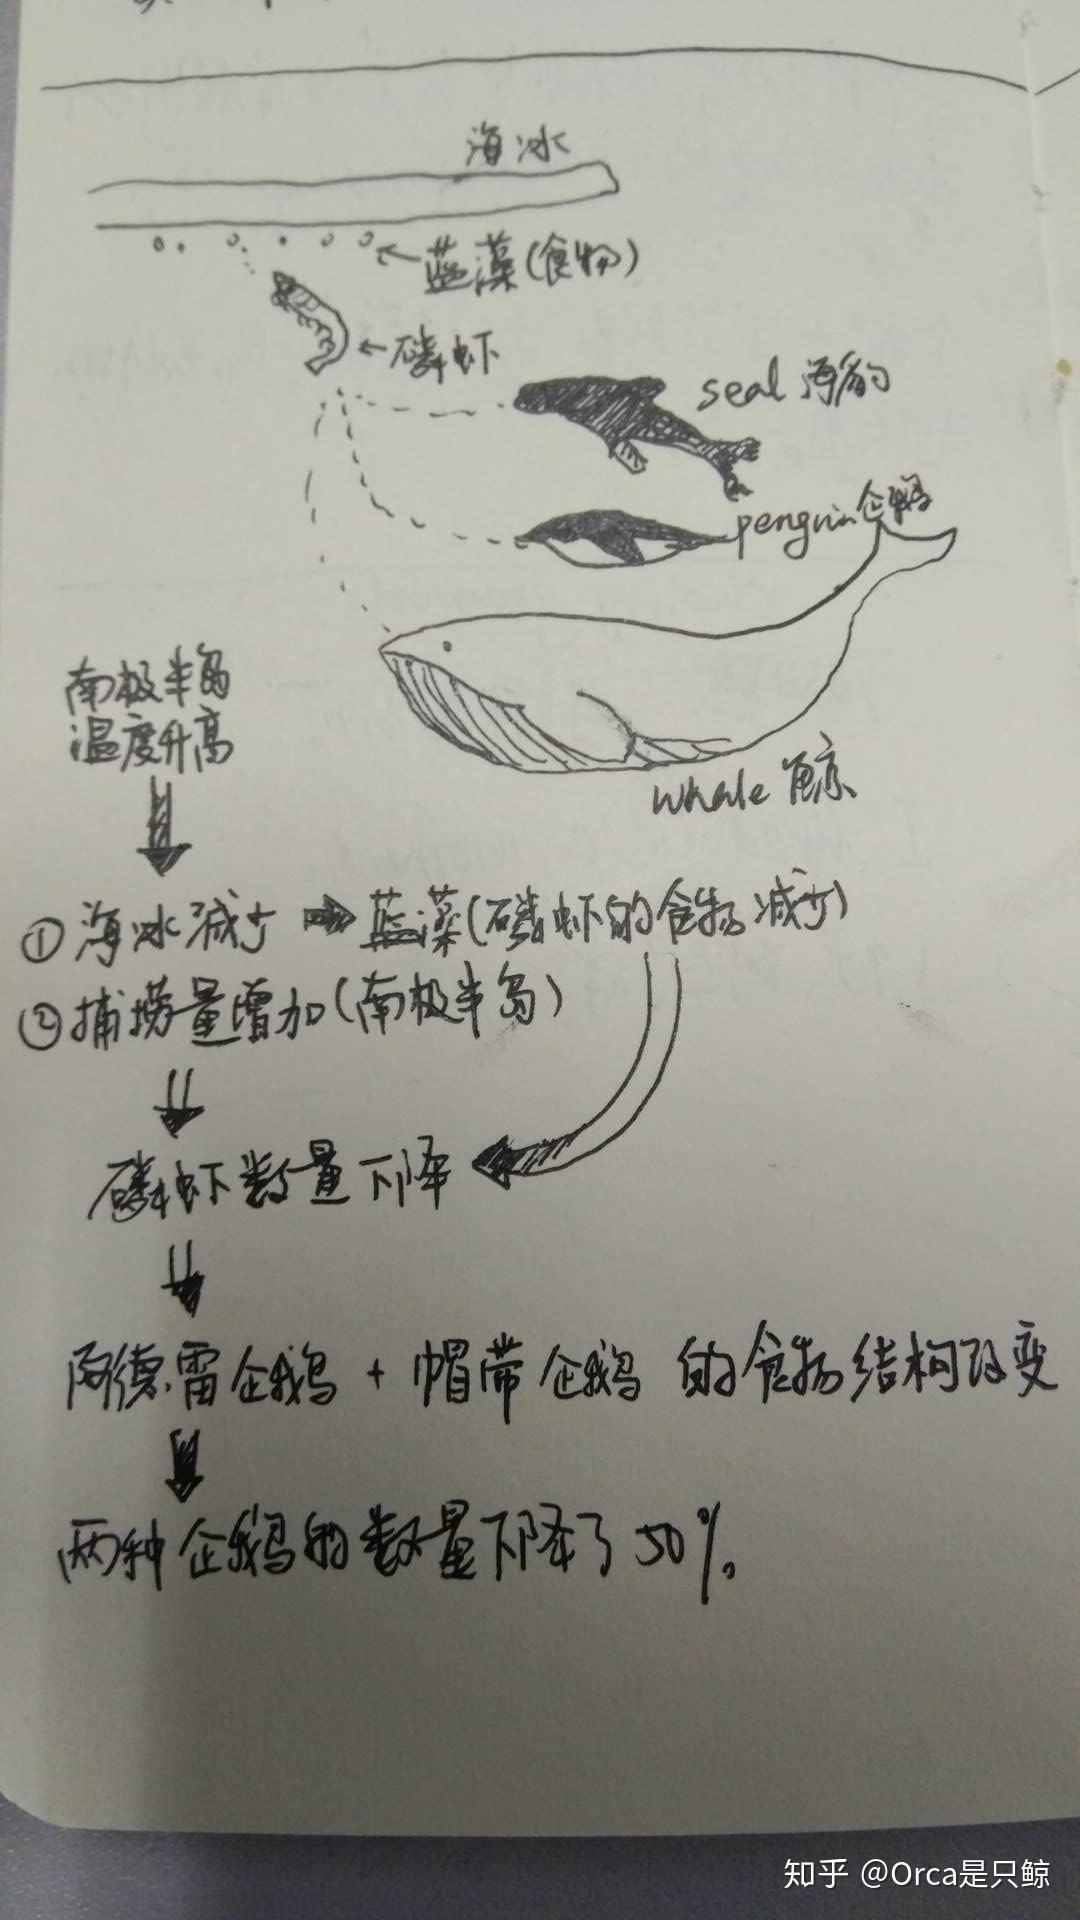 海冰
蓝藻(食物)
磷虾
seal 海豹
penguin 企鹅
whale 鲸
南极半岛
温度升高
①海冰减少 蓝藻(磷虾的食物减少)
②捕捞量增加(南极半岛)
磷虾数量下降
阿德雷企鹅 + 帽带企鹅 的食物结构改变
两种企鹅的数量下降了50%。
知乎 @Orca是只鲸